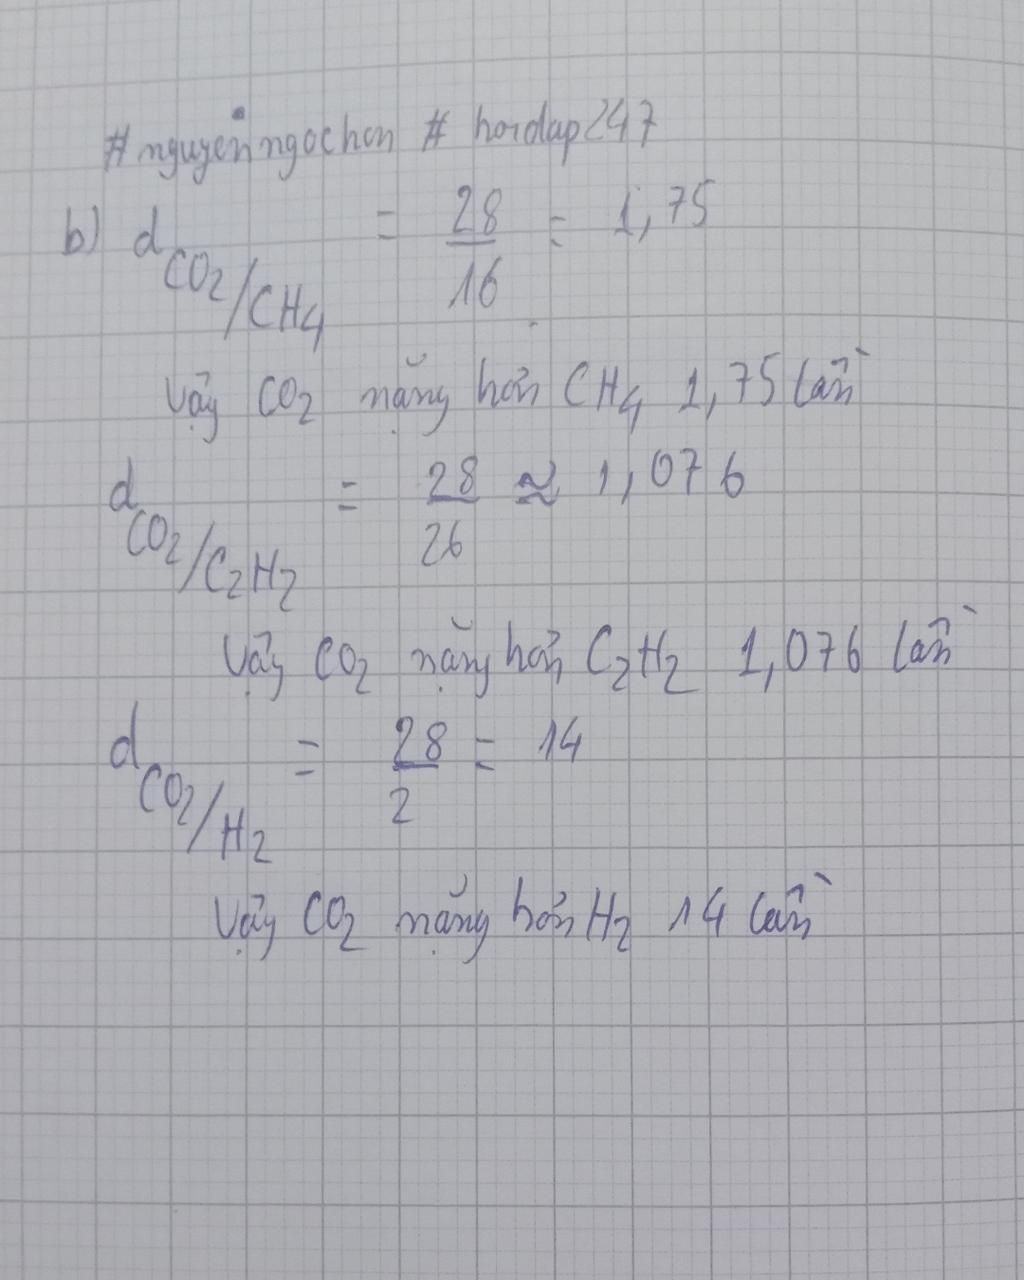 #nguyenngochon # hoidap247
b) d CO2/CH4 = 28/16 = 1,75
Vậy CO2 nặng hơn CH4 1,75 lần
d CO2/C2H2 = 28/26 ≈ 1,076
Vậy CO2 nặng hơn C2H2 1,076 lần
d CO2/H2 = 28/2 = 14
Vậy CO2 nặng hơn H2 14 lần